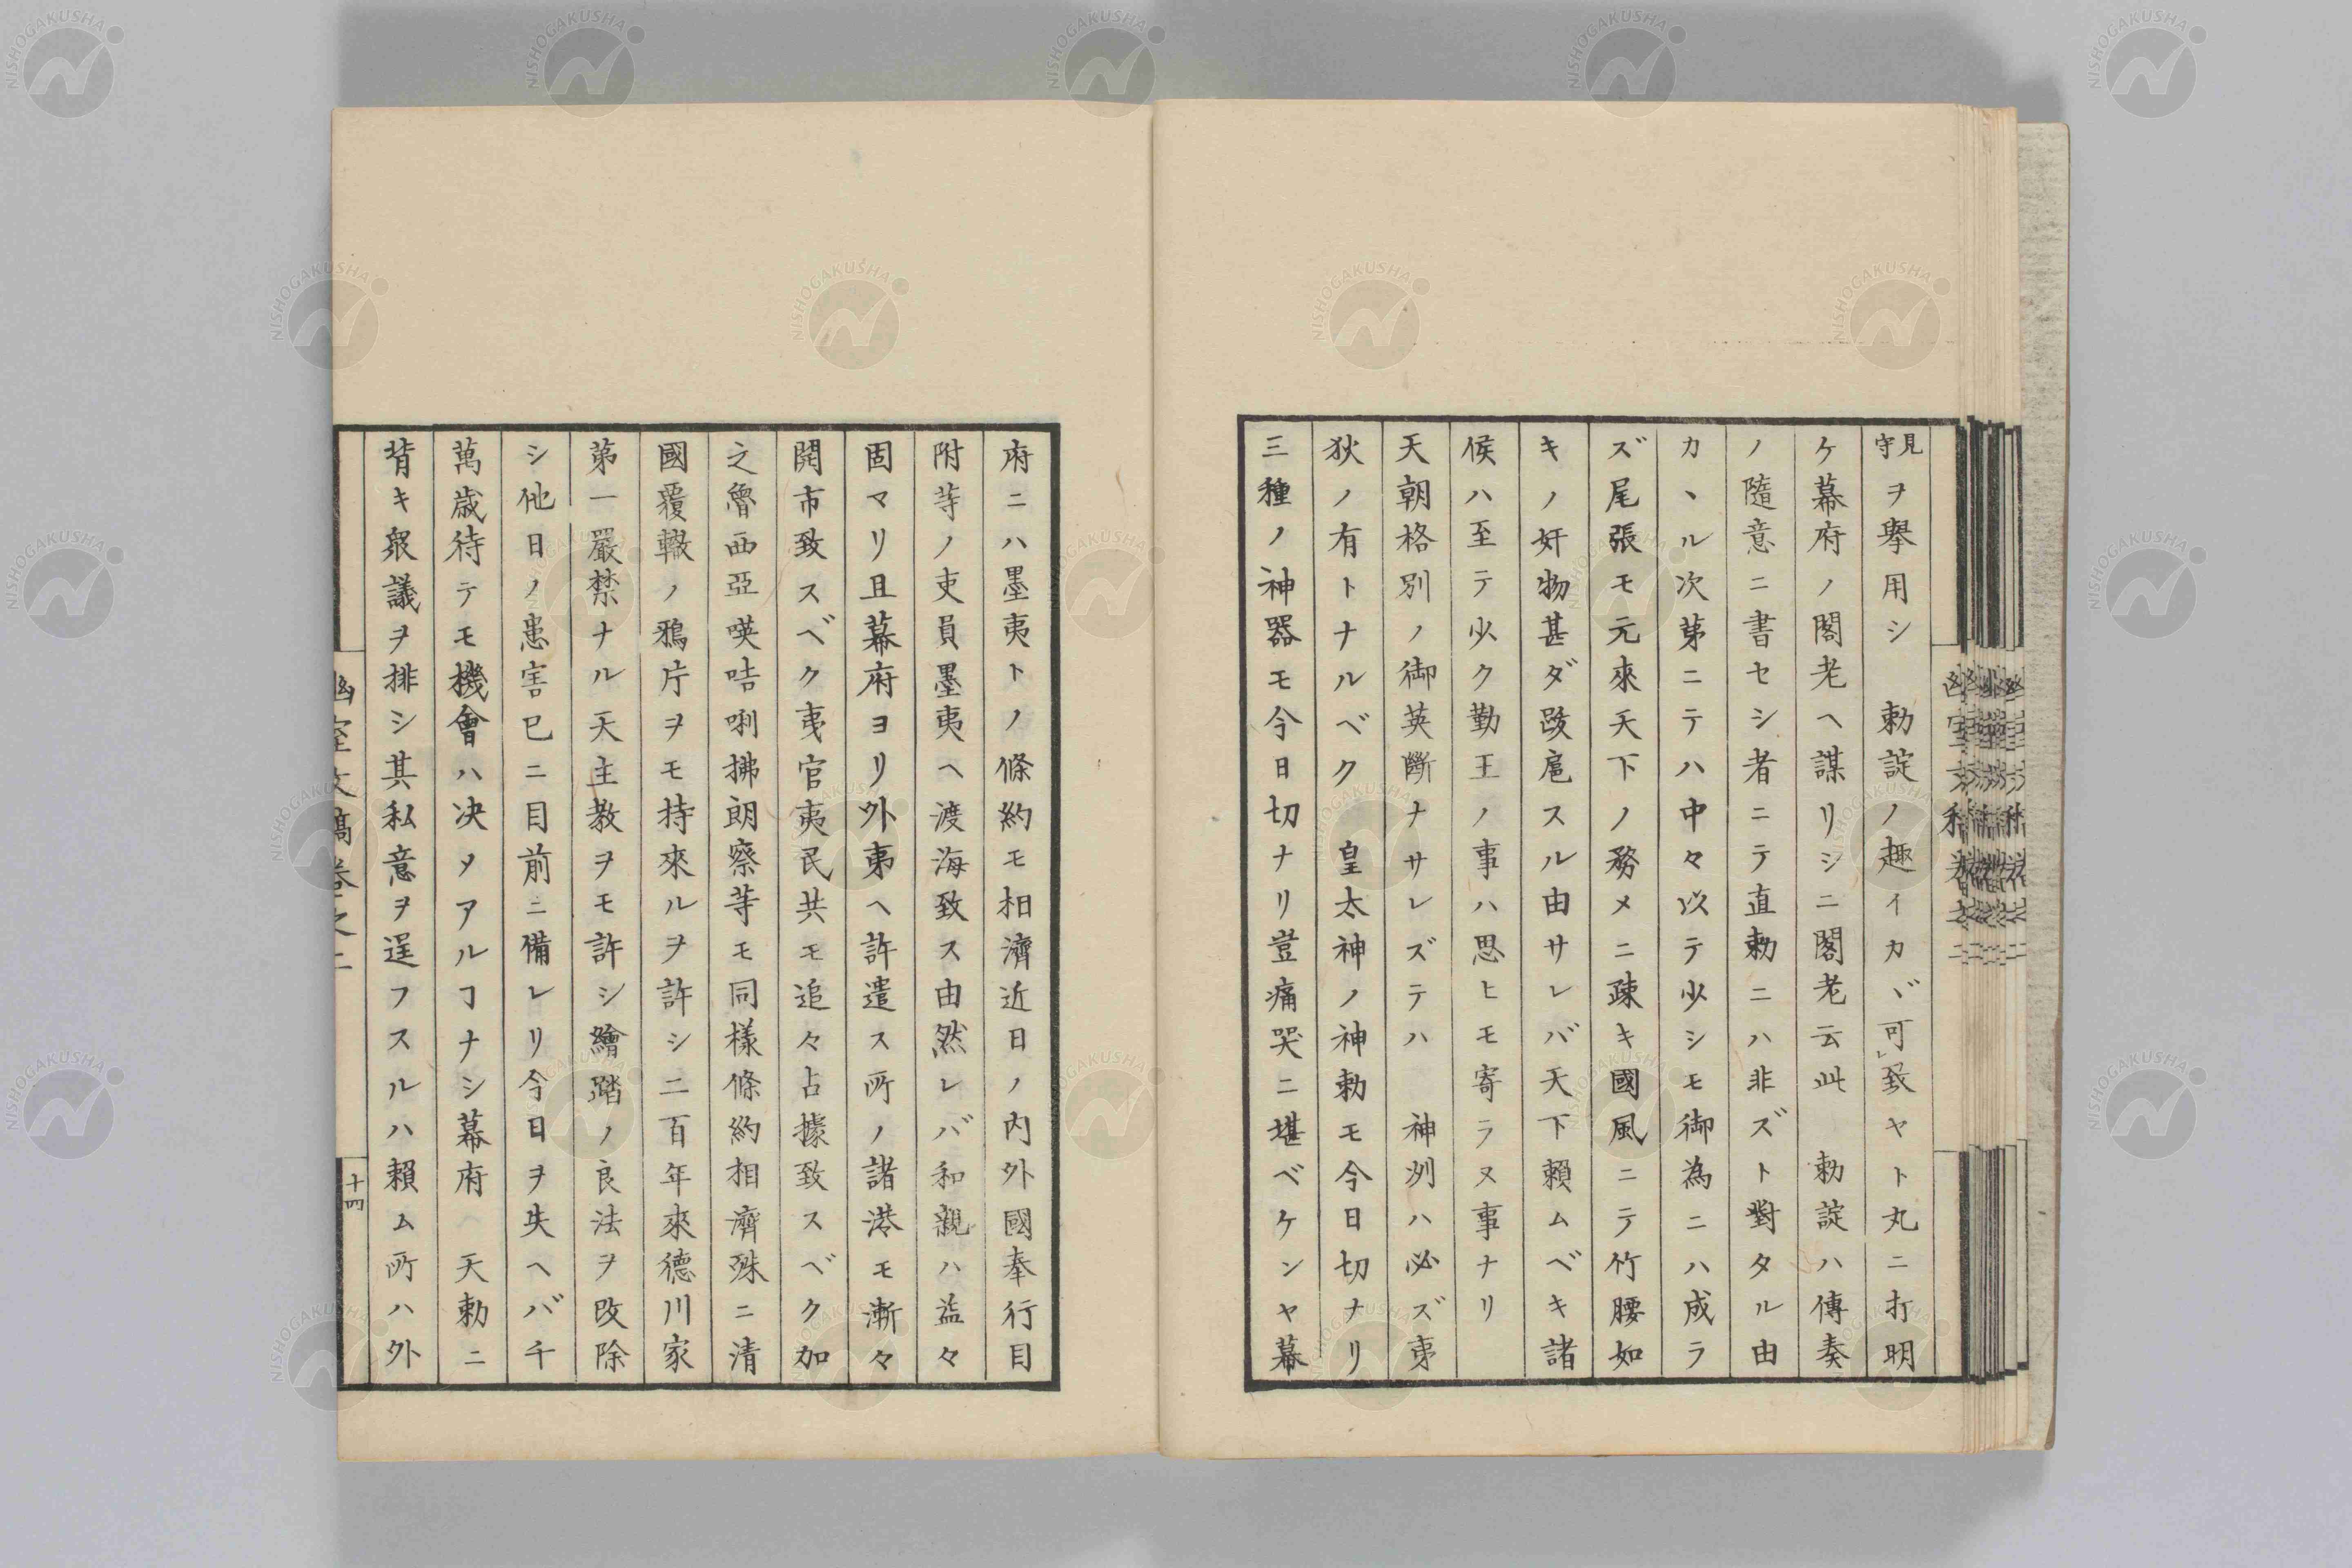 見守ヲ擧用シ　勅諚ノ趣イカヾ可致ヤト丸ニ打明
ケ幕府ノ閣老ヘ謀リシニ閣老云此　勅諚ハ傳奏
ノ隨意ニ書セシ者ニテ直勅ニハ非ズト對タル由
カヽル次第ニテハ中々以テ少シモ御為ニハ成ラ
ズ尾張モ元來天下ノ務メニ疎キ國風ニテ竹腰如
キノ奸物甚ダ跋扈スル由サレバ天下頼ムベキ諸
侯ハ至テ少ク勤王ノ事ハ思ヒモ寄ラヌ事ナリ
天朝格別ノ御英斷ナサレズテハ　神洲ハ必ズ夷
狄ノ有トナルベク　皇太神ノ神勅モ今日切ナリ
三種ノ神器モ今日切ナリ豈痛哭ニ堪ベケンヤ幕
府ニハ墨夷トノ條約モ相濟近日ノ内外國奉行目
附等ノ吏員墨夷ヘ渡海致ス由然レバ和親ハ益々
固マリ且幕府ヨリ外夷ヘ許遣ス所ノ諸港モ漸々
開市致スベク夷官夷民共モ追々占據致スベク加
之魯西亞暎咭唎拂朗察等モ同樣條約相濟殊ニ清
國覆轍ノ鴉片ヲモ持來ルヲ許シ二百年來德川家
第一嚴禁ナル天主教ヲモ許シ繪踏ノ良法ヲ改除
シ他日ノ患害已ニ目前ニ備レリ今日ヲ失ヘバ千
萬歳待テモ機會ハ決メアルヿナシ幕府ハ天勅ニ
背キ衆議ヲ排シ其私意ヲ逞フスルハ頼ム所ハ外
幽室文稿卷之二
十四
NISHOGAKUSHA